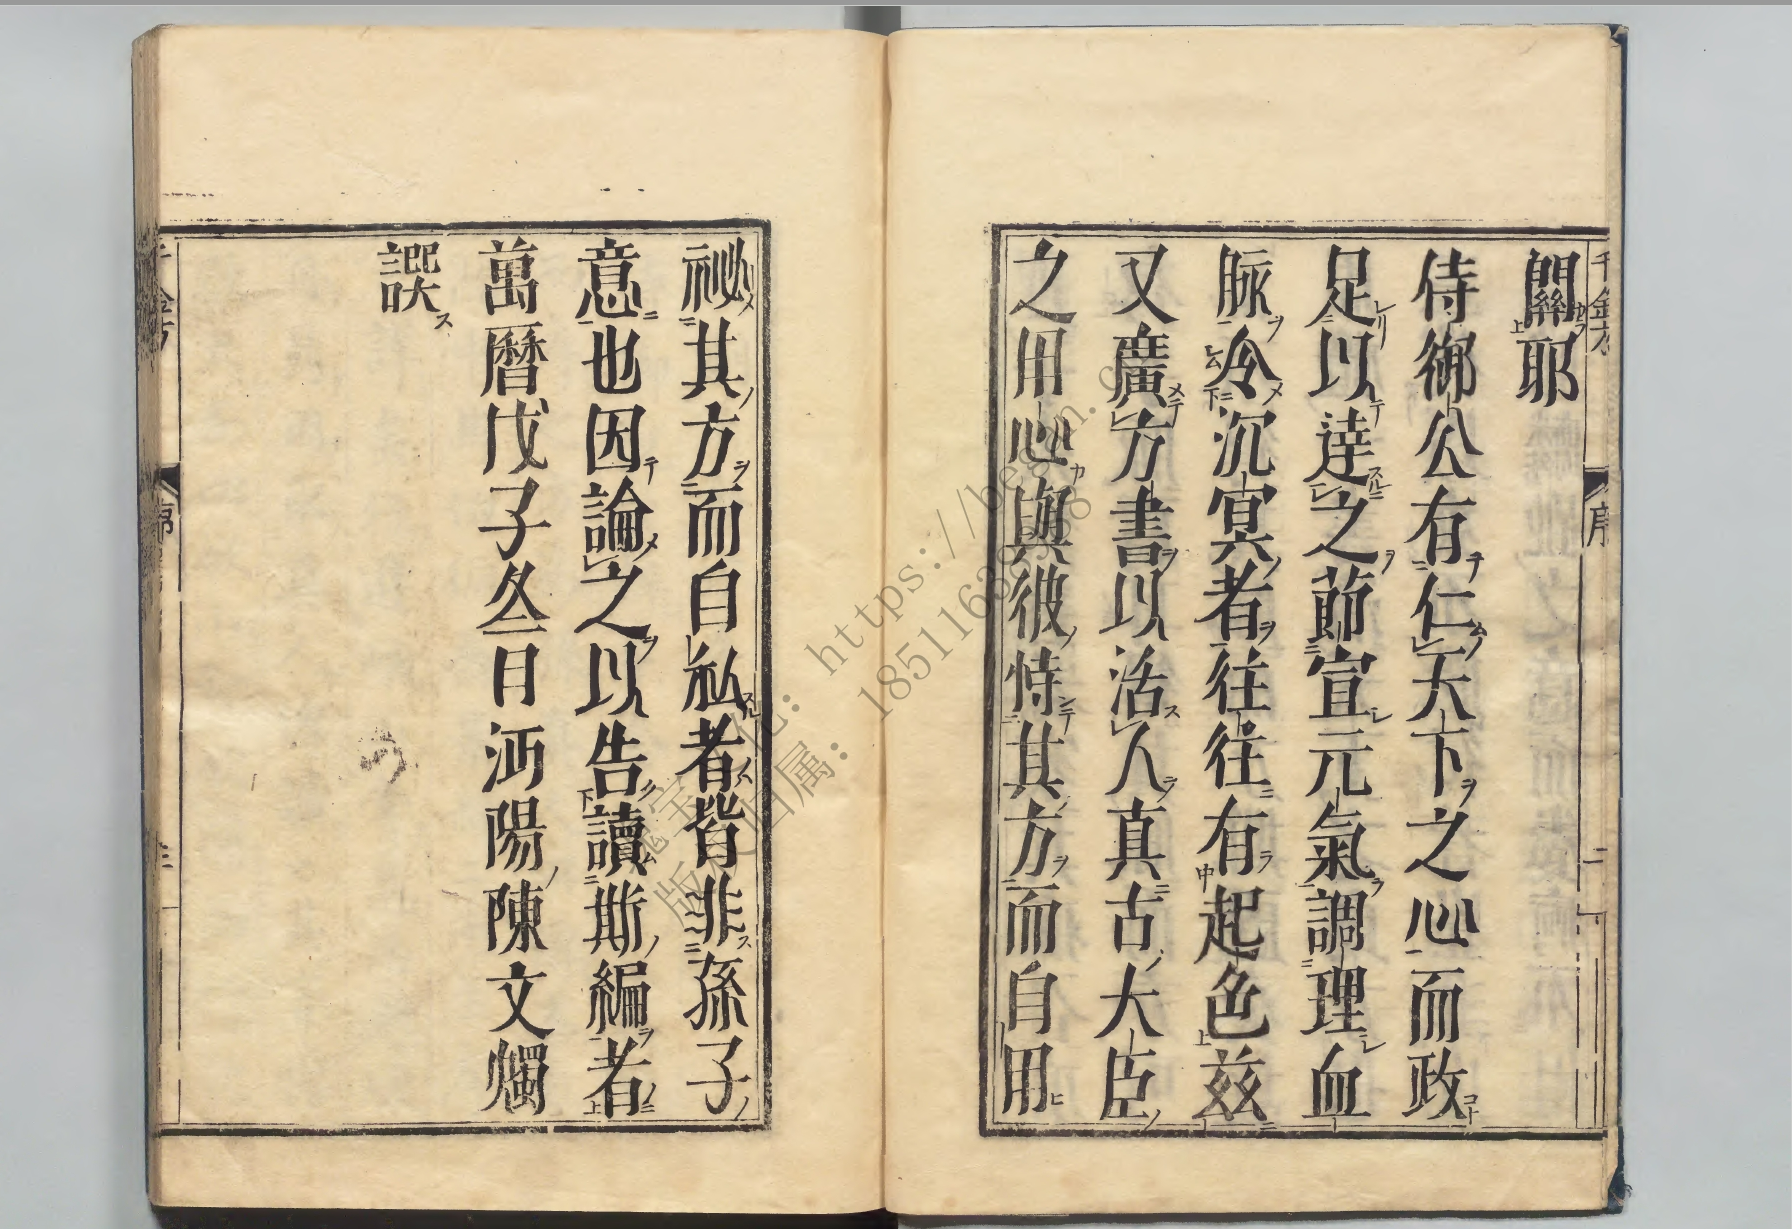 關耶
侍御公有仁天下之心而政
足以達之節宣元氣調理血
脉令沉冥者往往有起色茲
又廣方書以活人真古大臣
之用心與彼恃其方而自用
祕其方而自私者皆非孫子
意也因論之以告讀斯編者
萬曆戊子冬日沔陽陳文燭
譔